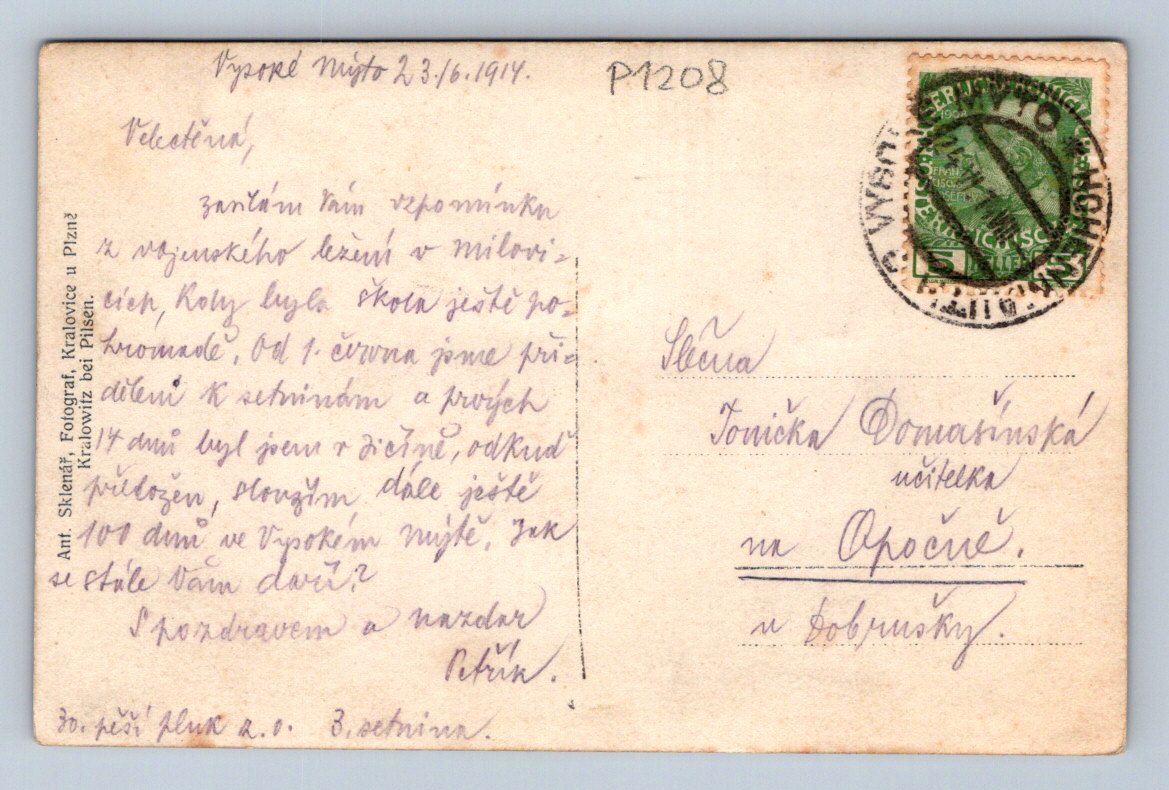 Vysoké Mýto 23./6. 1914.
P1208
Velectěná,
zasílám Vám vzpomínku
z vojenského ležení v Milovi-
cích, Kdy byla škola ještě po-
hromadě. Od 1. června jsme při-
dělení k setninám a prvých
14 dnů byl jsem v Jičíně, odkud
přeložen, sloužím dále ještě
100 dnů ve Vysokém Mýtě. Jak
se stále Vám daří?
S pozdravem a nazdar
Petřík.
30. pěší pluk a. o. 3. setnina.
Ant. Sklenář, Fotograf, Kralovice u Plzně
Kralowitz bei Pilsen.
Slečna
Tonička Domašínská
učitelka
na Opočně.
u Dobrušky.
MYTO
5